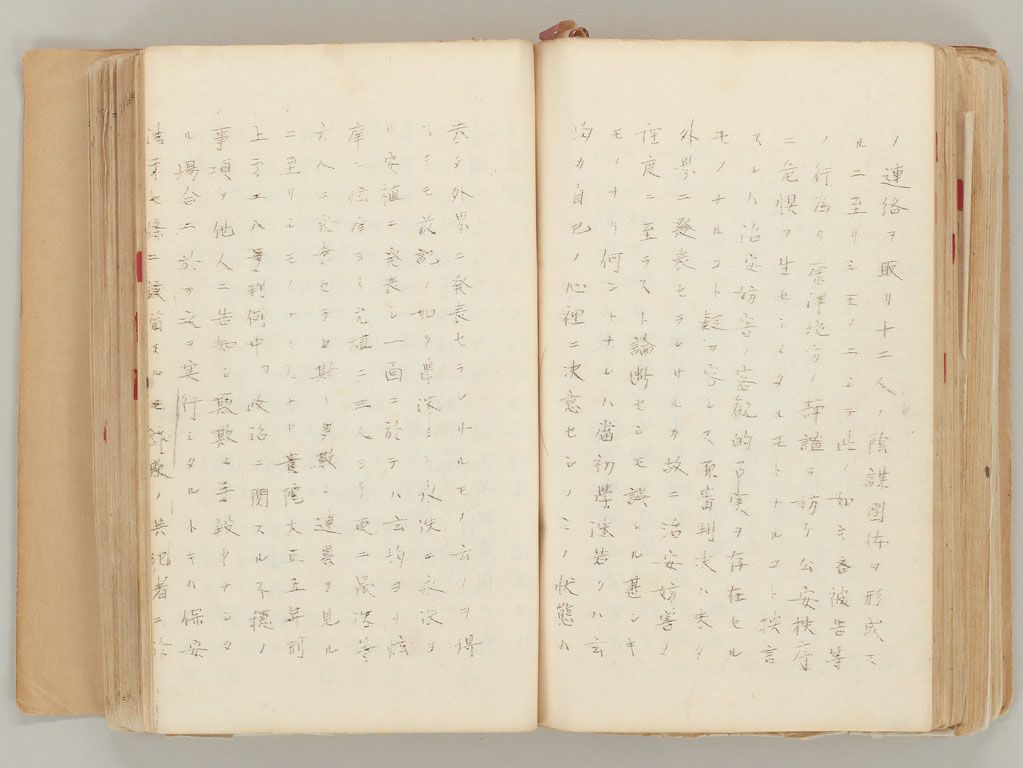 ノ連絡ヲ取リ十二人ノ陰謀團体ヲ形成ス
ルニ至リシモノニシテ此ノ如キ各被告等
ノ行為カ 地方ノ靜謐ヲ妨ケ公安秩序
ニ危惧ヲ生セシメタルモトナルコト換言
スレハ治安妨害ノ客觀的事実ヲ存在セル
モノナルコト疑ヲ容レス原審判決ハ未タ
外界ニ發表セラレサルカ故ニ治安妨害ノ
程度ニ至ラスト論断セシモ誤レル甚シキ
モノナリ何ントナレハ當初學洙若クハ玄
均カ自己ノ心裡ニ決意セシノミノ状態ハ
未タ外界ニ発表セラレサルモノト云フヲ得
ヘキモ前記ノ如ク學洙ヨリ永洙ニ永洙ヲ
リ寅植ニ発表シ一面ニ於テハ玄均ヨリ
庠ニ 庠ヨリ元植ニ三人ヨリ更ニ 等
六人ニ発表セラレ斯ク多数ノ連累ヲ見ル
ニ至リシモノトス 貴院大正五年刑
上 号判例中ニ政治ニ関スル不穏ノ
事項ヲ他人ニ告知シ 手段ナシタ
ル場合ニ於テ之ヲ実行シタルトキハ保安
法第七條ニ該當 ノ共犯者ニ於